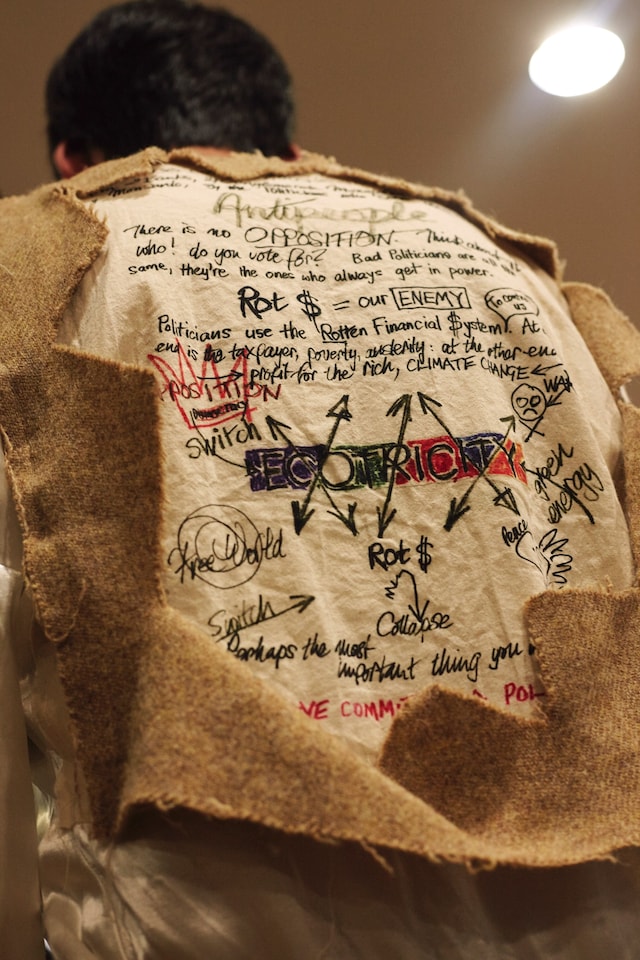 Antipeople
There is no OPPOSITION. Think about
who! do you vote for? Bad Politicians are all
same, they're the ones who always get in power.
Rot $ = our ENEMY
To control us
Politicians use the Rotten Financial $ystem. At
end is the taxpayer, poverty, austerity: at the other end
profit for the rich, CLIMATE CHANGE
OPPOSITION
Democracy
WAR
Switch
ECOTRICITY
green energy
Free World
Peace
Now
Rot $
Switch
Collapse
Perhaps the most
important thing you
VE COMMIT POL